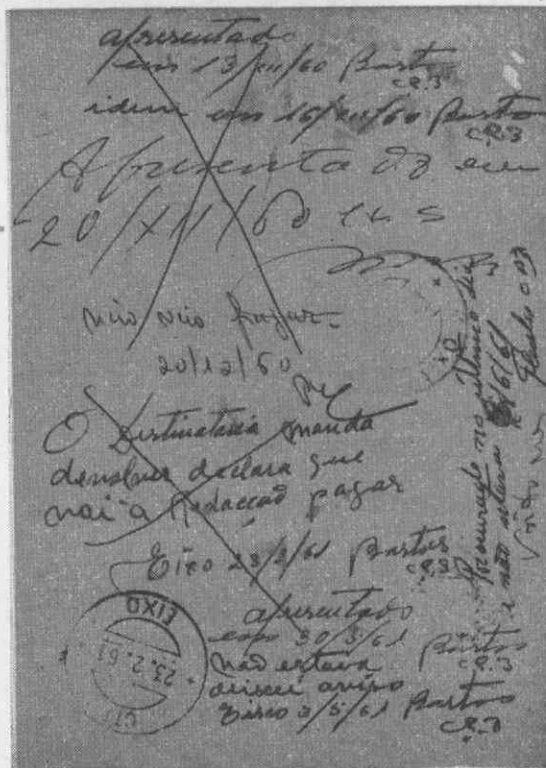 apresentado
em 13/XII/60 Bastos
C.R.3
idem em 16/XII/60 Bastos
C.R.3
Apresentado em
20/XII/60
não veio pagar
20/12/60
O Destinatario manda
devolver declara que
vai á Redacção pagar
Eixo 23/2/61 Bastos
C.R.3
EIXO
23.2.61
CTT
apresentado
em 30/3/61 Bastos
C.R.3
não estava
deixei aviso
Eixo 3/5/61 Bastos
C.R.3
Procurado no ultimo dia
e não estava